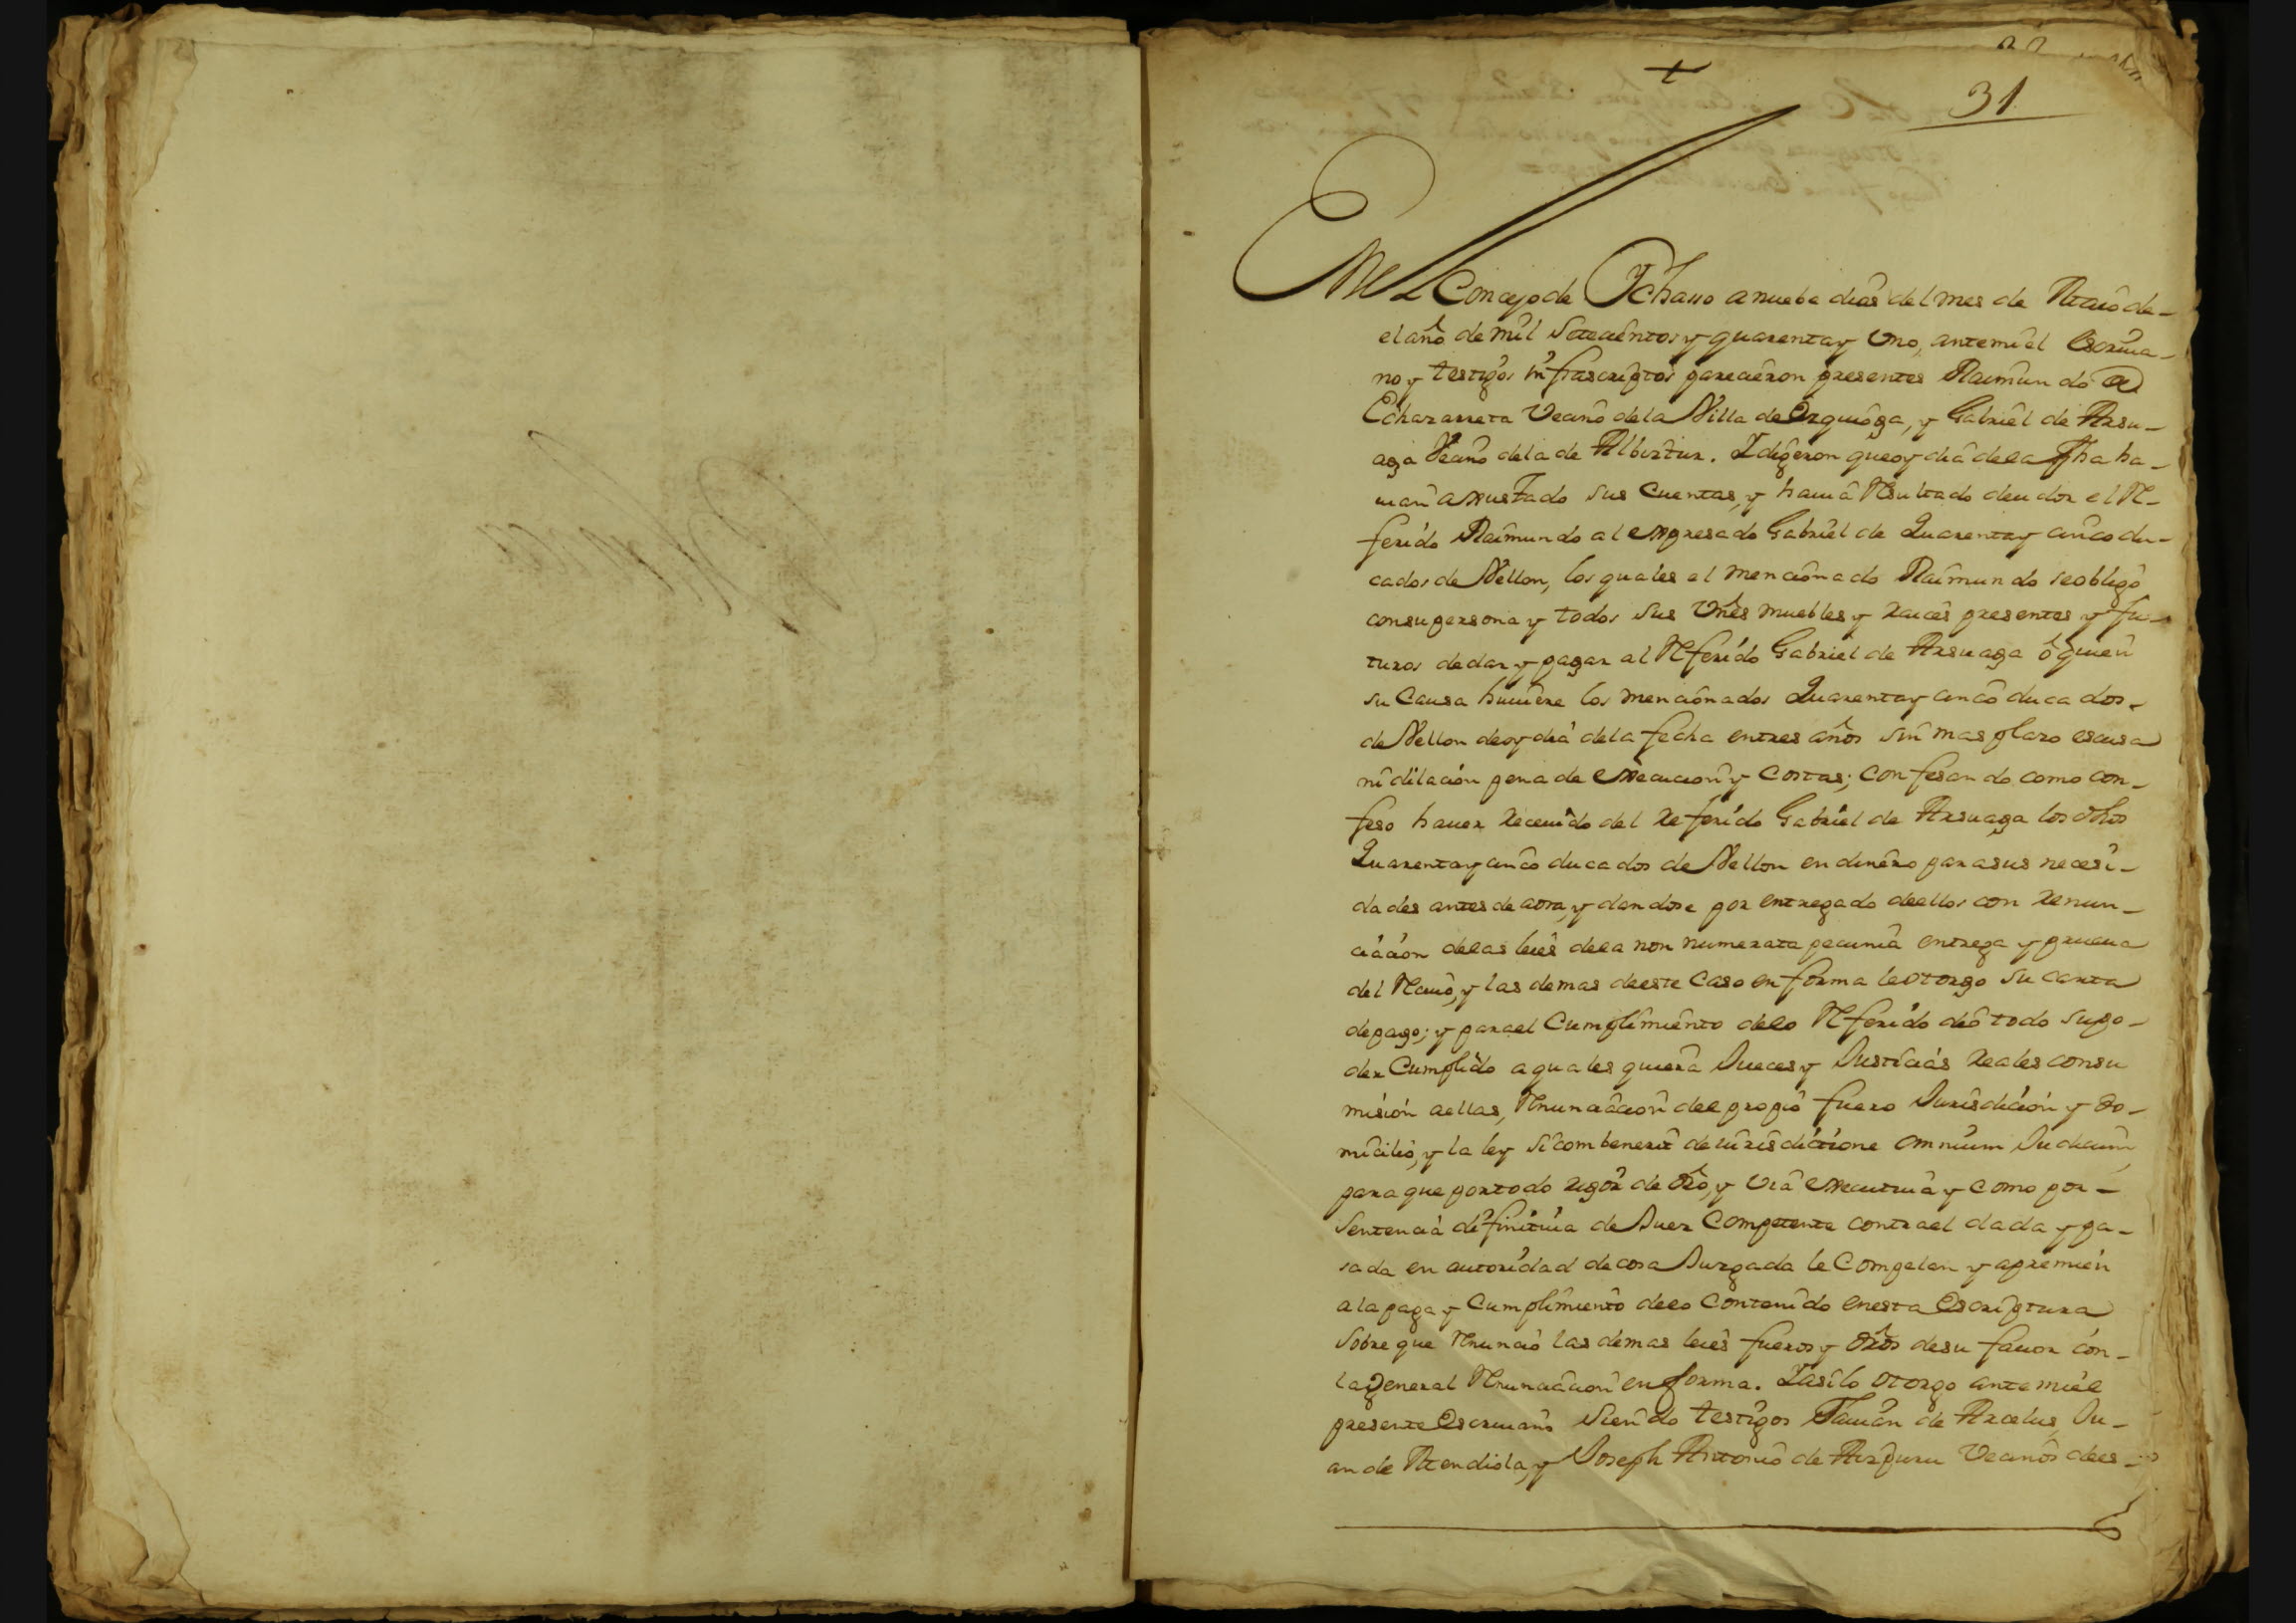 +
31
En el Concejo de Ychasso a nueba dias del mes de Maio de
el año de mil Setecientos y quarenta y Uno, ante mi el Escriua-
no y testigos infrascriptos parecieron presentes Raimundo de
Echazarreta Vecino de la Villa de Ezquioga, y Gabriel de Arsu-
aga Vecino de la de Albiztur. I digeron que oy dia de la fha ha-
uian axustado sus Cuentas, y hauia Resultado deudor el Re-
ferido Raimundo al expresado Gabriel de Quarenta y cinco du-
cados de Vellon, los quales el mencionado Raimundo se obligo
con su persona y todos sus Vnes muebles y raices presentes y fu-
turos de dar y pagar al Referido Gabriel de Arsuaga ô quien
su Causa huuiere los mencionados Quarenta y cinco ducados
de Vellon de oy dia de la fecha en tres años sin mas plazo escusa
ni dilacion pena de execucion y Costas; Confesando como con-
feso hauer receuido del referido Gabriel de Arsuaga los dhos
Quarenta y cinco ducados de Vellon en dinero para sus necesi-
dades antes de aora, y dandose por entregado de ellos con renun-
ciacion de las leies de la non numerata pecunia entrega y prueua
del Reciuo, y las demas de este Caso en forma le otorgo su carta
de pago; y para el Cumplimiento de lo Referido dió todo su po-
der Cumplido a quales quiera Jueces y Justicias reales con su
mision a ellas, Renunciacion de el propio fuero Jurisdicion y do-
micilio, y la ley si combenerit de iurisdictione omnium Judicum
para que por todo rigor de dro, y via executiua y como por
Sentencia difinitiua de Juez Competente contra el dada y pa-
sada en autoridad de cosa Juzgada le Compelan y apremien
a la paga y Cumplimiento de lo Contenido en esta Escriptura
Sobre que Renunció las demas leies fueros y dros de su fauor con
la general Renunciacion en forma. I asi lo otorgo ante mi el
presente Escriuano Siendo testigos Xauier de Arcelus, Ju-
an de Mendiola, y Joseph Antonio de Aizpuru Vecinos de es-